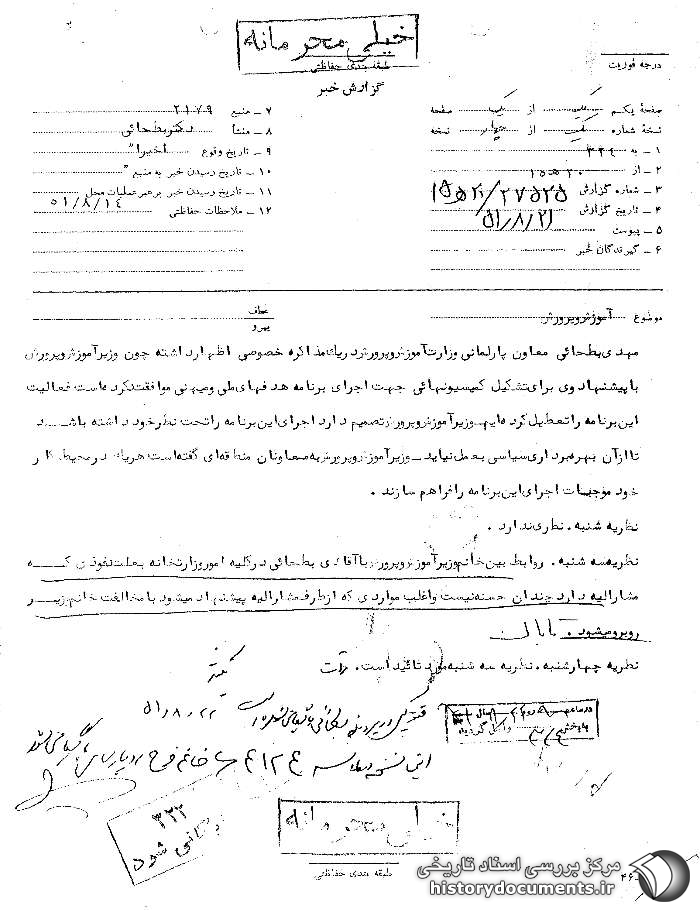 خیلی محرمانه
طبقه بندی حفاظتی
گزارش خبر
درجه فوریت
صفحه یکم یک از یک صفحه
نسخه شماره یک از چهار نسخه
۱ ـ به ۳۴۱
۲ ـ از ۲۰ ه ۱۵
۳ ـ شماره گزارش
۴ ـ تاریخ گزارش ۵۱/۸/۲۱
۵ ـ پیوست
۶ ـ گیرندگان خبر
۷ ـ منبع ۲۱۷۹
۸ ـ منشأ دکتر بطحائی
۹ ـ تاریخ وقوع اخیرا"
۱۰ ـ تاریخ رسیدن خبر به منبع "
۱۱ ـ تاریخ رسیدن خبر برهبر عملیات محل ۵۱/۸/۱۴
۱۲ ـ ملاحظات حفاظتی
موضوع آموزش و پرورش
عطف
پیرو
مهدی بطحائی معاون پارلمانی وزارت آموزش و پرورش در یك مذاکره خصوصی اظهار داشته چون وزیر آموزش و پرورش
با پیشنهاد وی برای تشکیل کمیسیونهائی جهت اجرای برنامه هدفهای ملی و میهنی موافقت نکرده است فعالیت
این برنامه را تعطیل کرده ایم ـ وزیر آموزش و پرورش تصمیم دارد اجرای این برنامه را تحت نظر خود داشته باشد
تا از آن بهره برداری سیاسی بعمل نیاید ـ وزیر آموزش و پرورش به معاونان منطقه ای گفته است هر یك در محیط کار
خود موجبات اجرای این برنامه را فراهم سازند .
نظریه شنبه . نظری ندارد .
نظریه سه شنبه . روابط بین خانم وزیر آموزش و پرورش با آقای بطحائی در کلیه امور وزارتخانه بعلت نفوذی که
مشارالیه دارد چندان حسنه نیست و اغلب مواردی که از طرف مشارالیه پیشنهاد میشود با مخالفت خانم وزیر
روبرو میشود .
نظریه چهارشنبه . نظریه سه شنبه مورد تائید است .
۵۱/۸/۲۲
۳۲۲
بایگانی شود
خیلی محرمانه
طبقه بندی حفاظتی
مرکز بررسی اسناد تاریخی
historydocuments.ir